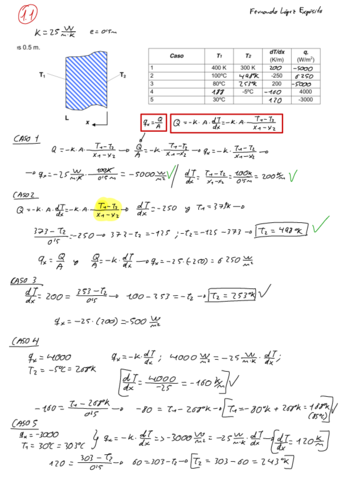 1.1
Fernando López Expósito
K = 25 W/m·K   e = 0'5m
is 0.5 m.
T₁ T₂
L x
Caso T₁ T₂ dT/dx (K/m) qₓ (W/m²)
1 400 K 300 K 200 -5000
2 100ºC 498K -250 6250
3 80ºC 253K 200 -5000
4 188 -5ºC -160 4000
5 30ºC 120 -3000
qₓ = Q/A   Q = -K·A·dT/dx = -K·A·T₁-T₂/x₁-x₂
CASO 1
Q = -K·A·dT/dx = -K·A·T₁-T₂/x₁-x₂ → Q/A = -K·T₁-T₂/x₁-x₂ → qₓ = -K·T₁-T₂/x₁-x₂ →
→ qₓ = -25 W/m·K · 100K/0'5m = -5000 W/m² ✓ dT/dx = T₁-T₂/x₁-x₂ = 100K/0'5m = 200K/m ✓
CASO 2
Q = -K·A·dT/dx = -K·A·T₁-T₂/x₁-x₂ → dT/dx = -250 y T₁ = 373K →
373-T₂/0'5 = -250 → 373-T₂ = -125; -T₂ = -125-373 → T₂ = 498K ✓
qₓ = Q/A y Q/A = -K·dT/dx → qₓ = -25·(-250) = 6250 W/m²
CASO 3
dT/dx = 200 = 353-T₂/0'5 → 100-353 = -T₂ → T₂ = 253K ✓
qₓ = -25·(200) = -500 W/m²
CASO 4
qₓ = 4000   qₓ = -K·dT/dx; 4000 W/m² = -25 W/m·K · dT/dx;
T₂ = -5ºC = 268K
dT/dx = 4000/-25 = -160 K/m ✓
-160 = T₁-268K/0'5 → -80 = T₁-268K → T₁ = -80K + 268K = 188K ✓
CASO 5
qₓ = -3000
T₁ = 30ºC = 303ºC
qₓ = -K·dT/dx => -3000 W/m² = -25 W/m·K · dT/dx → dT/dx = 120 K/m
120 = 303-T₂/0'5 → 60 = 303-T₂ → T₂ = 303-60 = 243ºK ✓